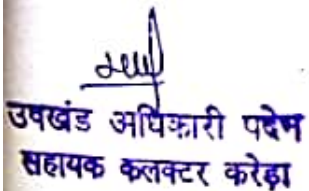 उपखंड अधिकारी पदेन
सहायक कलक्टर करेड़ा